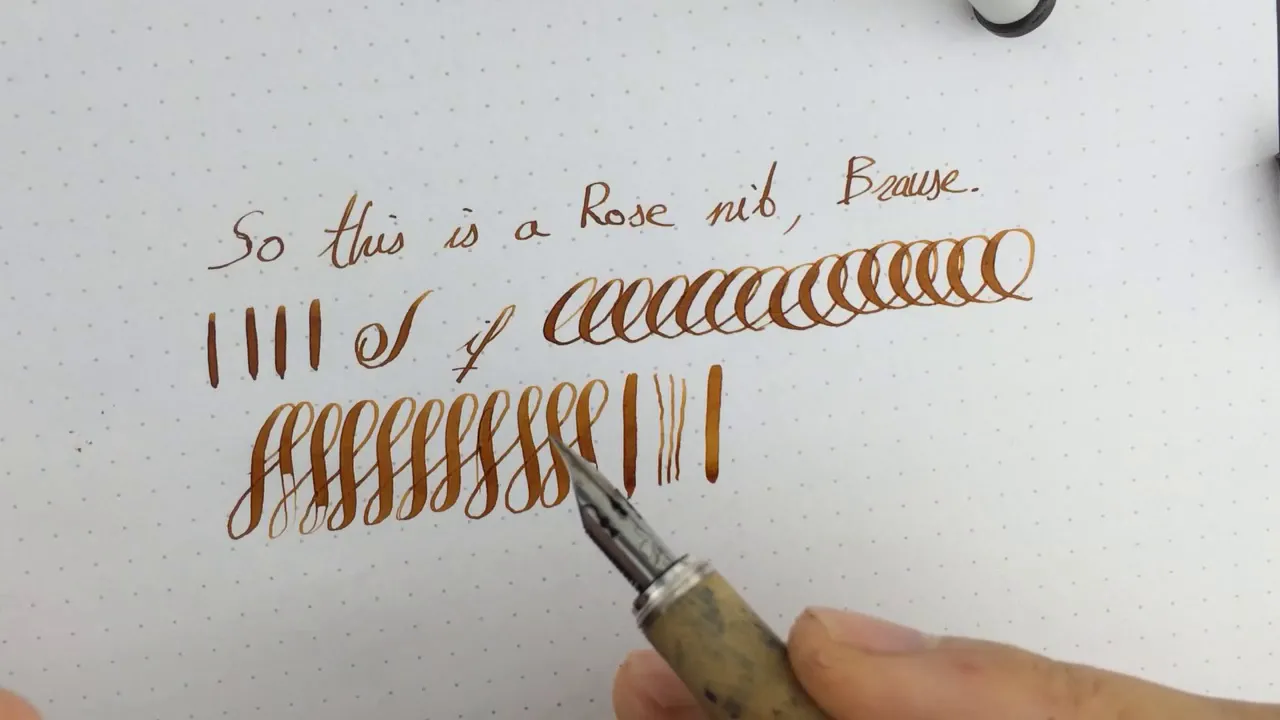 So this is a Rose nib, Brause.